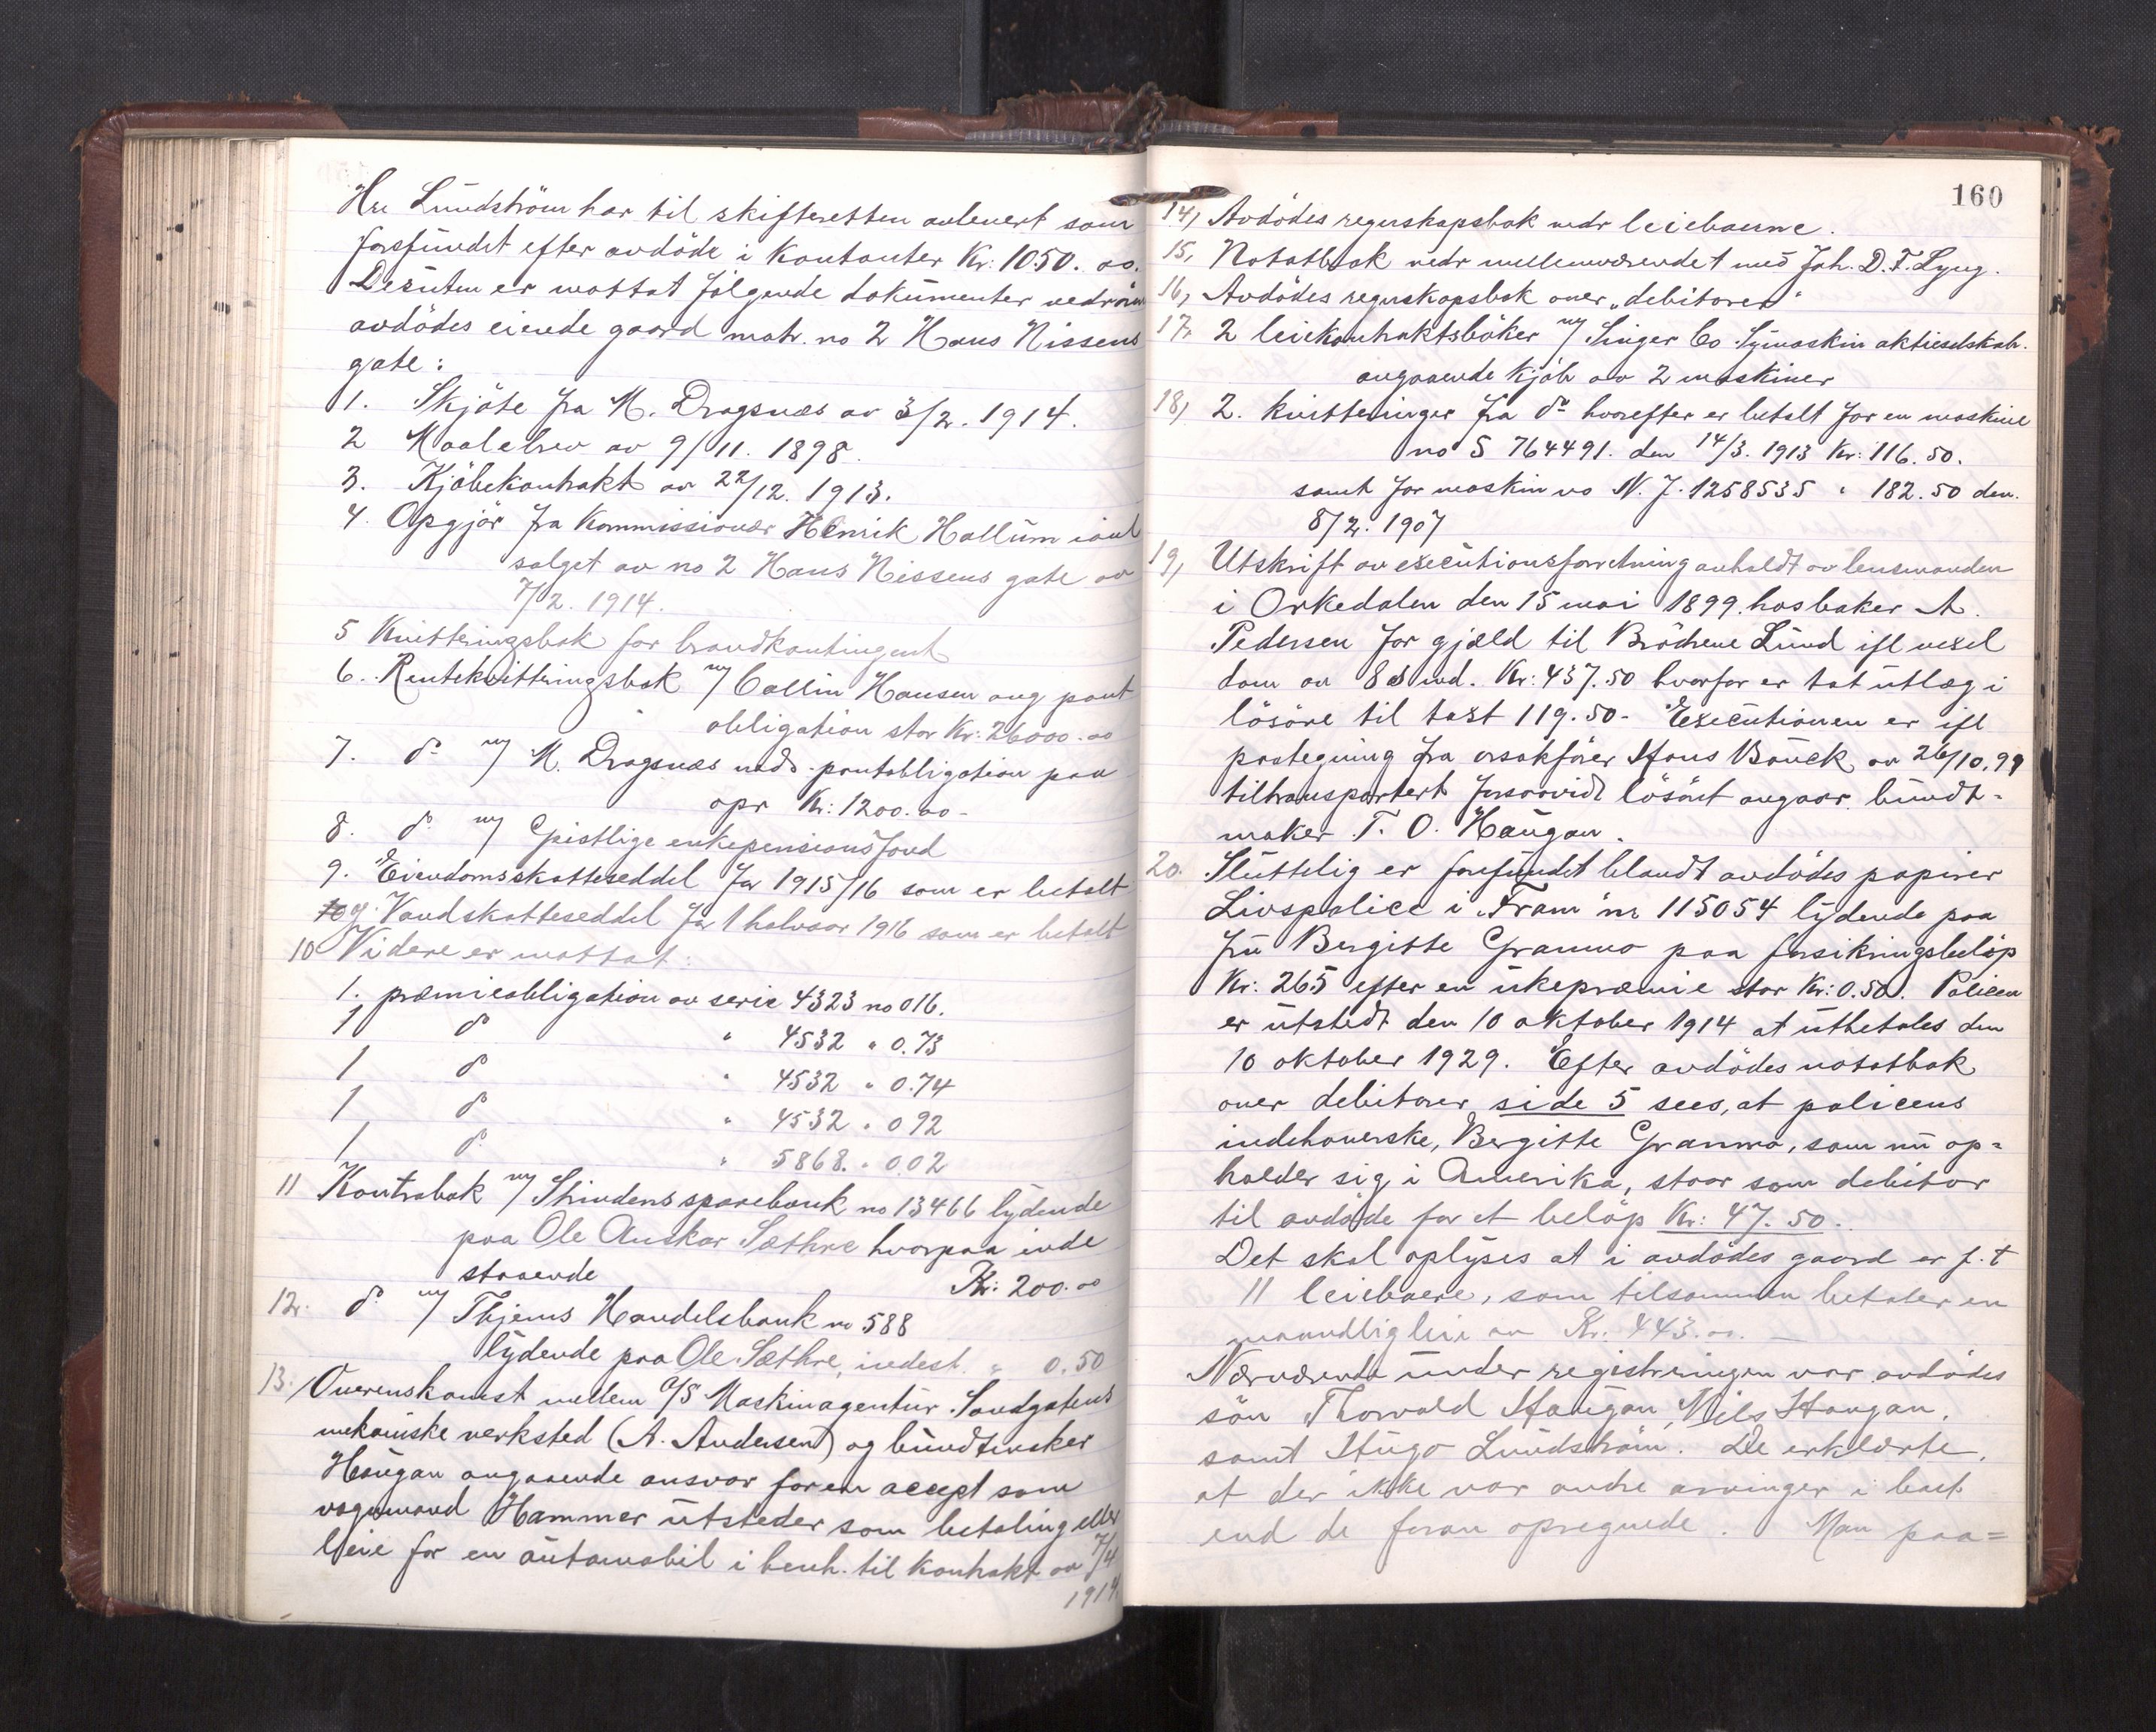 Hr Lundström har til skifteretten avlevert som
forefundet efter avdöde i Kontanter Kr: 1050. oo.
Desuten er mottat fölgende dokumenter vedrör
avdödes eiende gaard matr. no 2 Hans Nissens
gate:
1. Skjöte fra M. Dragsnæs av 3/2. 1914.
2 Maalebrev av 9/11. 1898.
3. Kjöbekontrakt av 22/12. 1913.
4. Opgjör fra Kommissionær Henrik Hallum
salget av no 2 Hans Nissens gate av
7/2. 1914.
5 Kvitteringsbok for brandkontingent
6. Rentekvitteringsbok m/ Collin Hansen ang pant
obligation stor Kr: 26000.oo
7. do m/ M. Dragsnæs pantobligation paa
opr Kr: 1200.oo-
8. do m/ Geistlige enkepensionsfond
9. Eiendomsskatteseddel for 1915/16 som er betalt
og Vandskatteseddel for 1 halvaar 1916 som er betalt
10 Videre er mottat:
1. præmieobligation av serie 4323 no 016.
1 do " 4532 " 0.73
1 do " 4532 " 0.74
1 do " 4532 " 0 92
1 do " 5868. " 0.02
11 Kontrabok m/ Strindens sparebank no 13466 lydende
paa Ole Anskar Sæthre hvorpaa inde
staaende Kr: 200.oo
12. do m/ Thjems Handelsbank no 588
lydende paa Ole Sæthre, indest. " 0.50
13. Overenskomst mellem A/S Maskinagentur Sandgatens
mekaniske verksted (A. Andersen) og bundtmaker
Haugan angaaende ansvar for en accept som
vognmand Hammer utsteder som betaling eller
leie for en automobil i henh. til kontrakt av 7/4
1914.
160
14, Avdödes regnskapsbok vedr leieboerne.
15, Notatbok vedr mellemværendet med Joh. D. F. Lyng.
16, Avdödes regnskapsbok over „debitorer“
17. 2 leiekontraktsböker m/ Singer Co Symaskin aktieselskab.
angaaende kjöb av 2 maskiner
18, 2. kvitteringer fra do hvorefter er betalt for en maskine
no S 764491. den 14/3. 1913 Kr: 116.50.
samt for maskin no N. J. 1258535 " 182.50 den.
8/2. 1907
19, Utskrift av executionsforretning avholdt av lensmanden
i Orkedalen den 15 mai 1899. hos baker A.
Pedersen for gjæld til Brödrene Lund ifl vexel
dom av 8 ds md. Kr: 437.50 hvorfor er tat utlæg i
lösöre til taxt 119.50- Executionen er ifl
paategning fra orsakförer Hans Bauck av 26/10.99
tiltransportert forsaavidt lösöret angaar bundt-
maker T. O. Haugan.
20. Sluttelig er forefundet blandt avdödes papirer
Livspolice i „Fram“ nr 115054 lydende paa
fru Bergitte Granmo paa forsikringsbelöp
Kr: 265 efter en ukepræmie stor Kr: 0.50. Policen
er utstedt den 10 oktober 1914 at utbetales den
10 oktober 1929. Efter avdödes notatbok
over debitorer side 5 sees, at policens
indehaverske, Bergitte Granmo, som nu op=
holder sig i Amerika, staar som debitor
til avdöde for et belöp Kr: 47.50.
Det skal oplyses at i avdödes gaard er f. t
11 leieboere, som tilsammen betaler en
maandlig leie av Kr. 443.oo.
Nærværende under registreringen var avdödes
sön Thorvald Haugan, Nils Haugan,
samt Hugo Lundström. De erklærte,
at der ikke var andre arvinger i boet
end de foran opregnede. Man paa=